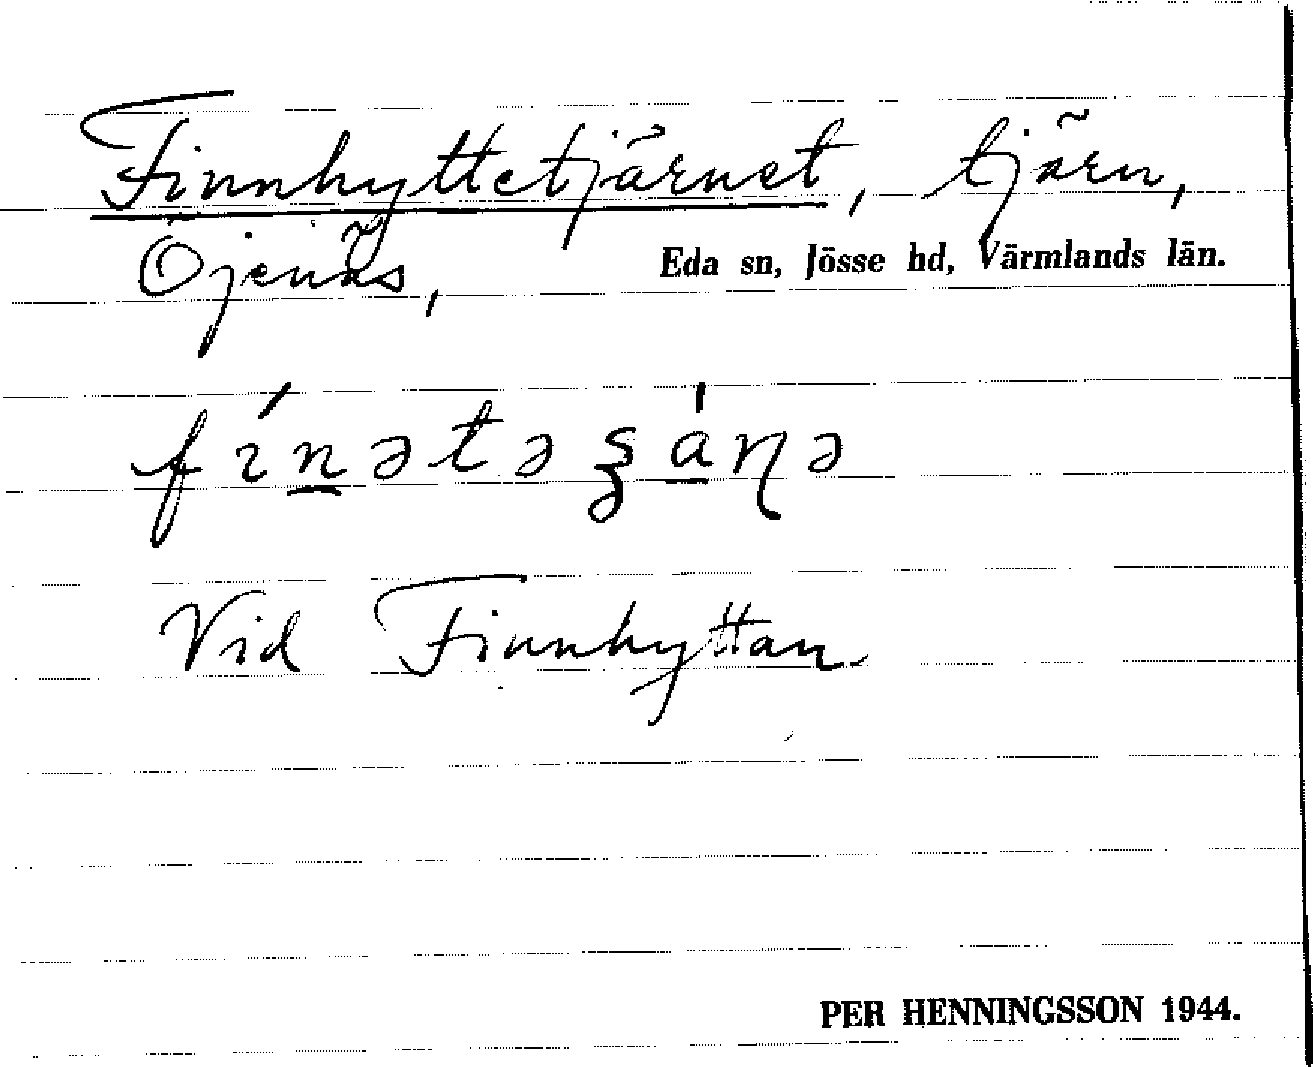 Finnhyttetjärnet, tjärn,
Öjenäs, Eda sn, Jösse hd, Värmlands län.
Vid Finnhyttan
PER HENNINGSSON 1944.